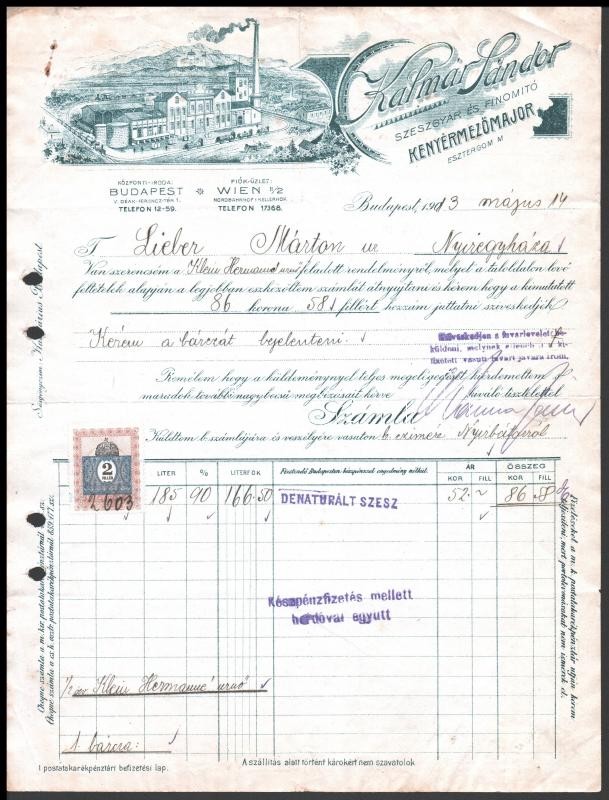 Kalmár Sándor
SZESZGYÁR ÉS FINOMÍTÓ
KENYÉRMEZŐMAJOR
ESZTERGOM M
KÖZPONTI-IRODA:
BUDAPEST
V. DEÁK-FERENCZ-TÉR 1.
TELEFON 12-59.
FIÓK-ÜZLET:
WIEN II/2
NORDBAHNHOF KELLERHOK
TELEFON 17368.
Budapest, 1913 május 14
T Lieber Márton úr Nyiregyháza
Van szerencsém a Klein Hermanné urnő feladott rendelményről, melyet a túloldalon levő
feltételek alapján a legjobban eszközöltem számlát átnyujtani és kérem hogy a kimutatott
86 korona 58 fillért hozzám juttatni sziveskedjék
Kérem a bárczát bejelenteni.
Szíveskedjen a fuvarlevelet
küldeni, melynek ellenében a ki-
fizetett vasuti fuvart javára irom.
Remélem hogy a küldeménynyel teljes megelégezését kiérdemeltem
maradok további nagybecsü megbizásait kérve kiváló tisztelettel
Számla
Küldtem b. számlájára és veszélyére vasuton b. czimére Nyirbátorból
LITER % LITERFOK Fizetendő Budapesten készpénzzel engedmény nélkül. ÁR KOR FILL ÖSSZEG KOR FILL
2 FILLÉR
2603 185 90 166.50 DENATURÁLT SZESZ 52 86 58
Készpénzfizetés mellett
hordóval együtt
Klein Hermanné urnő
1 bárcza:
1 postatakarékpénztári befizetési lap.
A szállítás alatt történt károkért nem szavatolok
Cheque számla a m. kir. postatakarékpénztárnál
Cheque számla a cs. k. oszt. postatakarékpénztárnál
Fizetéseket a m. k. postatakarékpénztár utján kérem